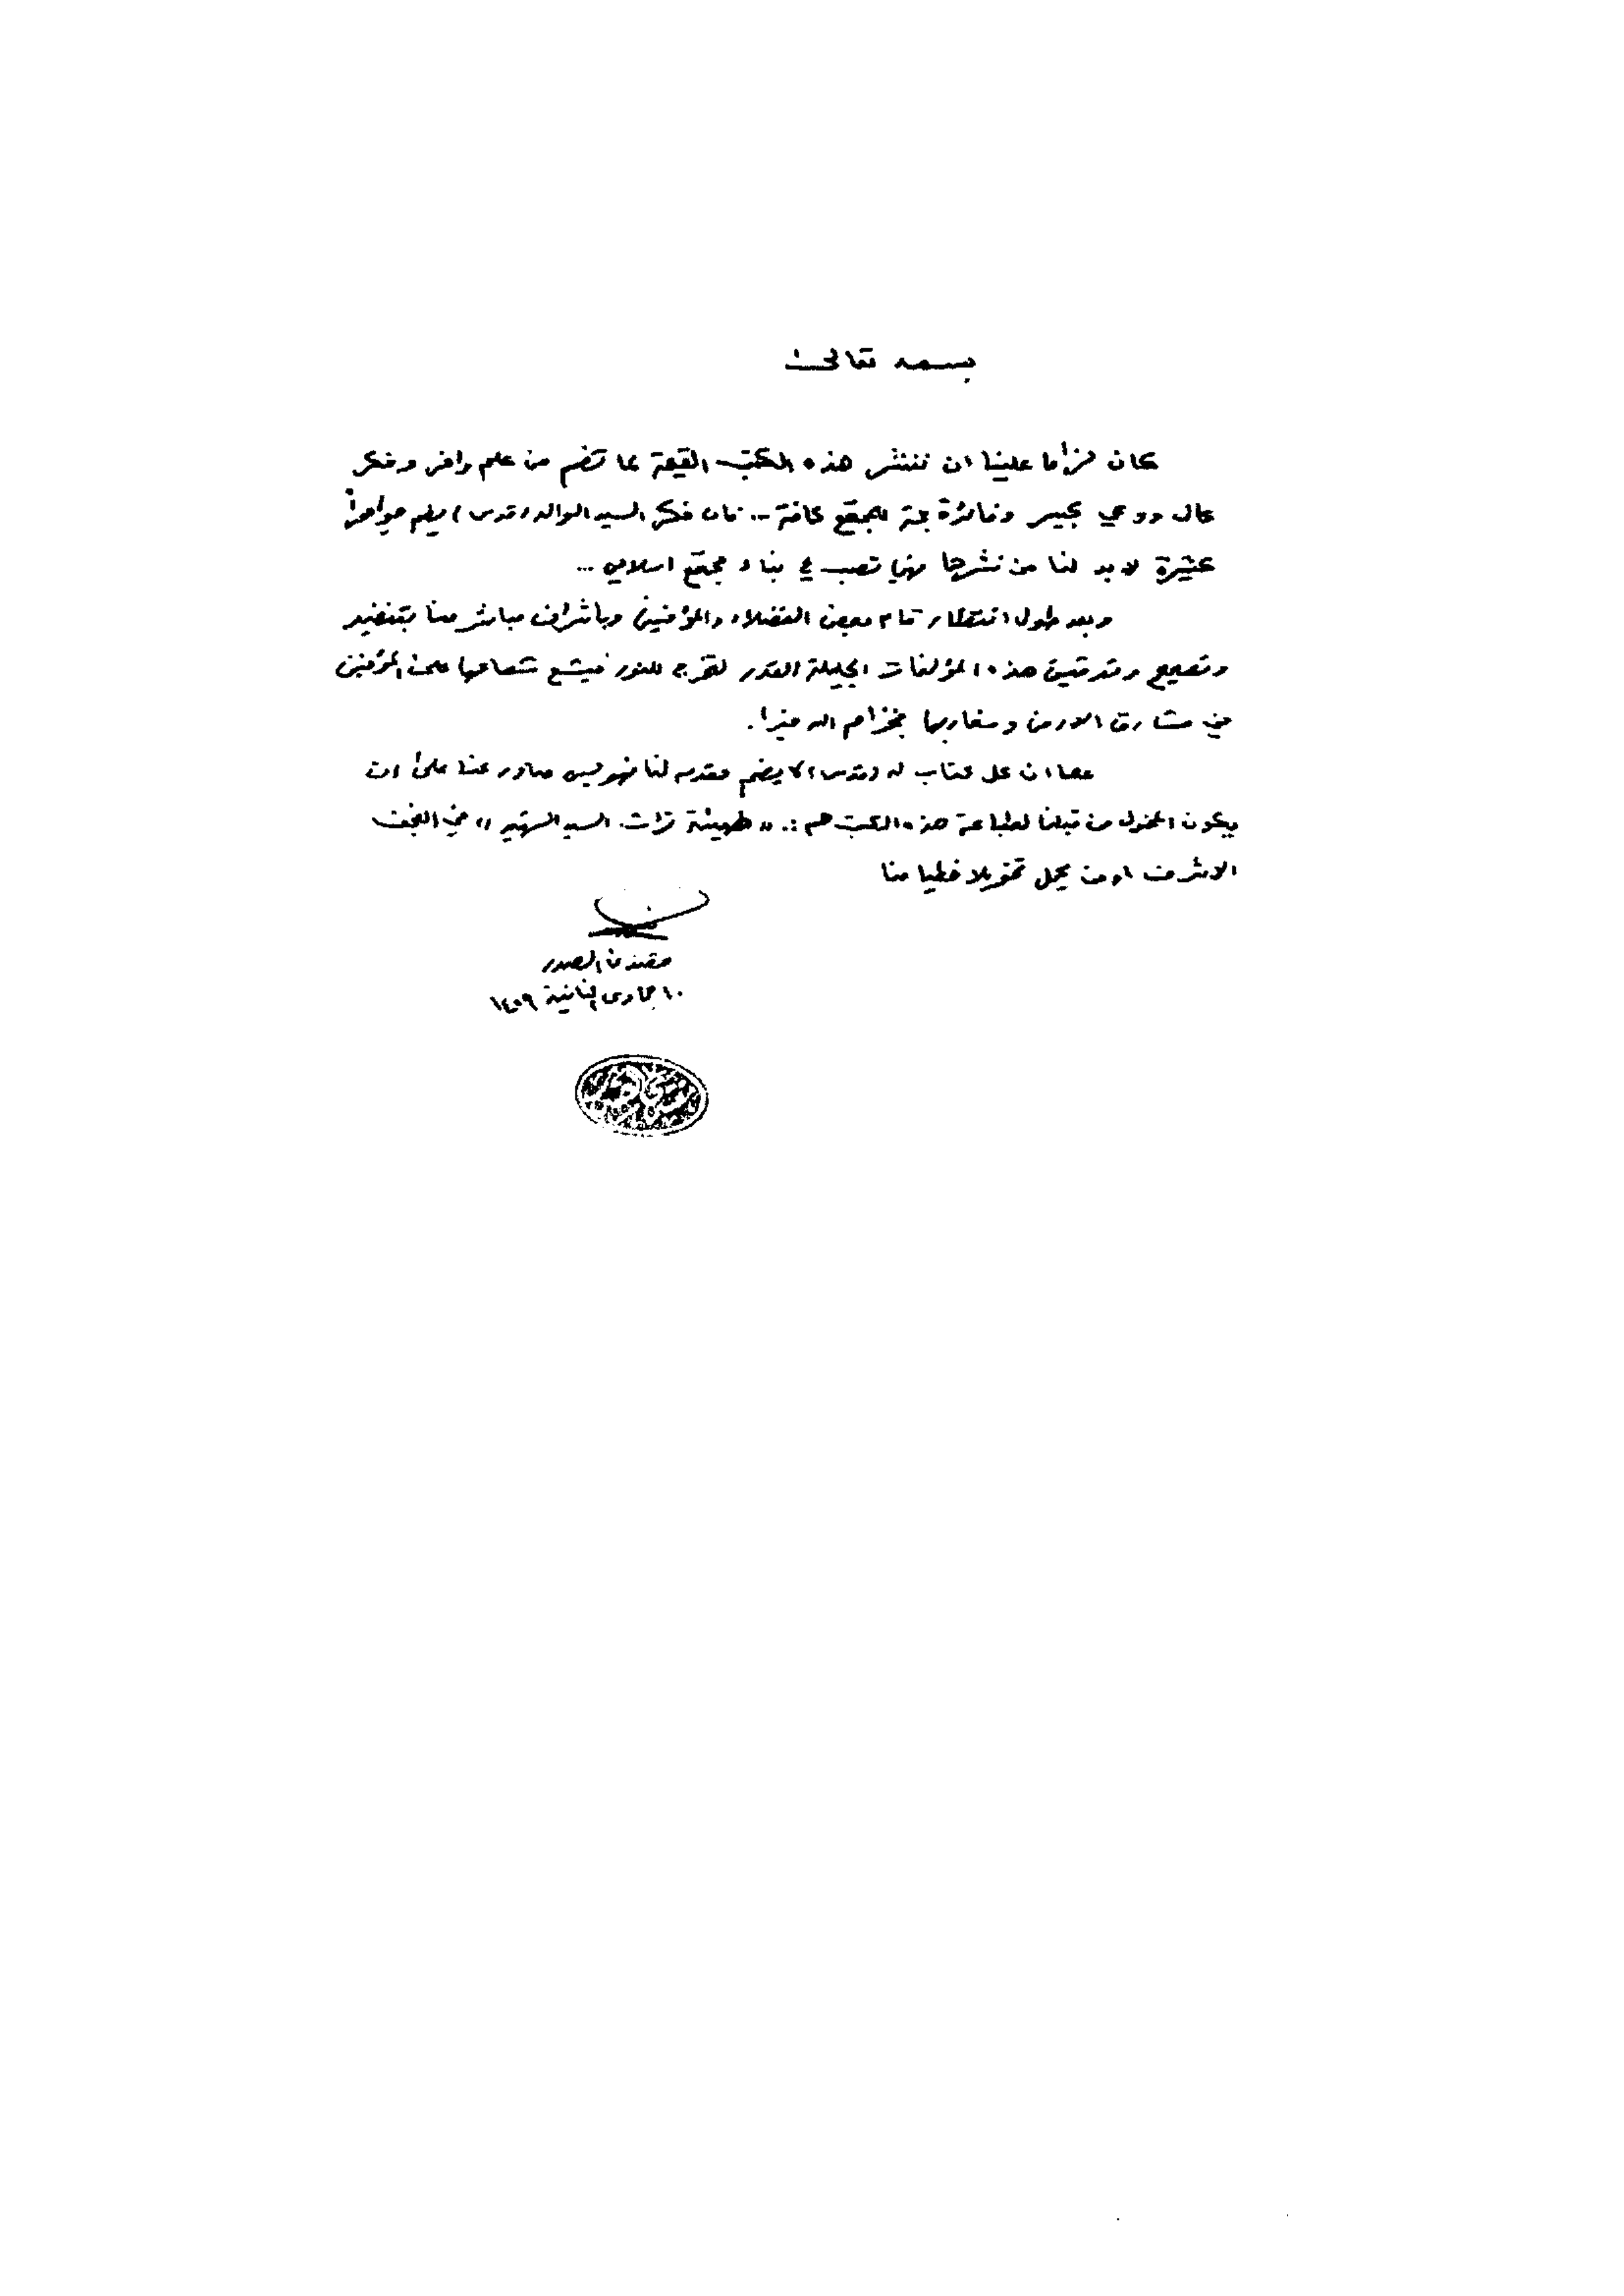 بسمه تعالى
كان لزاما علينا ان ننشر هذه الكتب القيمة لما تضم من علم وافر وفكر
عال ووعي كبير وفائدة جمة للمجتمع كافة ... فان فكر السيد الوالد (قدس) يضم جواهراً
كثيرة لا بد لنا من نشرها فهي تصب في بناء مجتمع اسلامي ...
وبعد طول انتظار قام بعض الفضلاء والمؤمنين وباشراف مباشر منا بتنضيد
وتصحيح وتدقيق هذه المؤلفات الجليلة القدر لتخرج للنور فيشع شعاعها على المؤمنين
في مشارق الارض ومغاربها فجزاهم الله خيرا.
كما ان كل كتاب له (قدس) لا يضم مقدمه لنا فهو ليس صادر عنا على ان
يكون المخول من قبلنا لطباعة هذه الكتب هم :. (( هيئة تراث السيد الشهيد )) في النجف
الاشرف او من يحمل تخويلا خطيا منا
مقتدى الصدر
١٠ جمادى الثانية ١٤٢٩